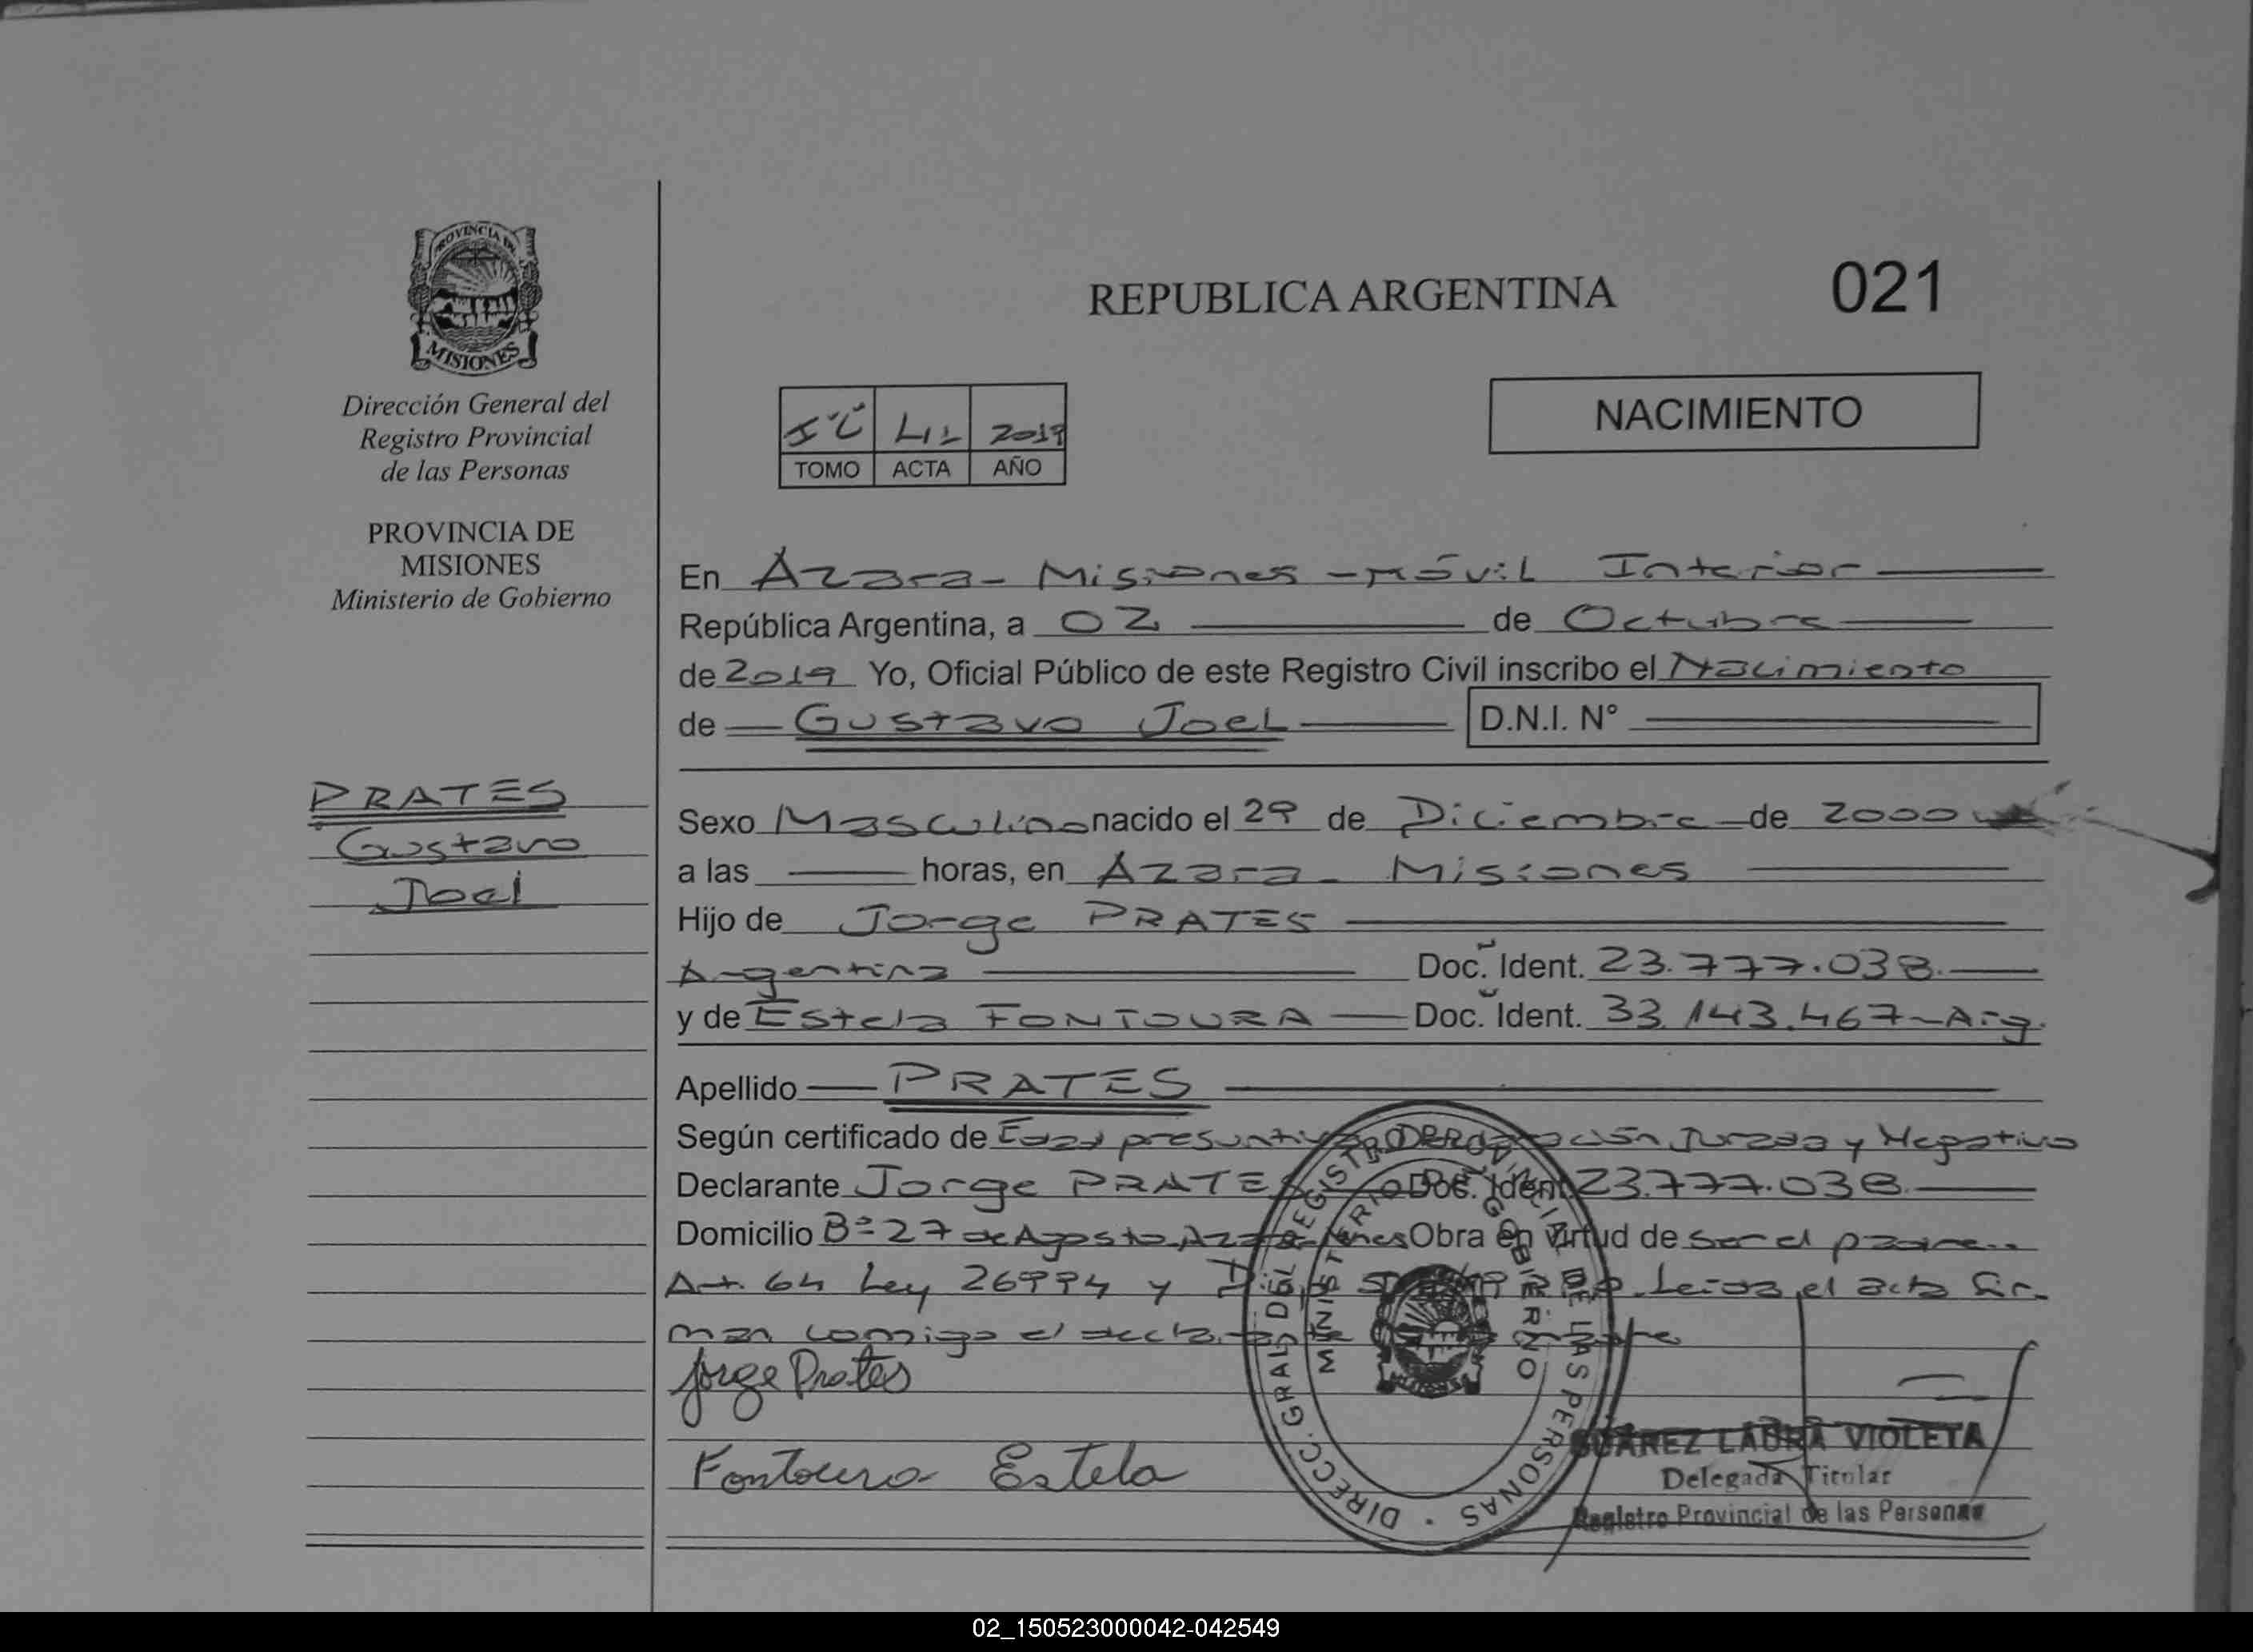 PROVINCIA DE
MISIONES
Dirección General del
Registro Provincial
de las Personas
PROVINCIA DE
MISIONES
Ministerio de Gobierno
PRATES
Gustavo
Joel
REPUBLICA ARGENTINA
021
2019
TOMO ACTA AÑO
NACIMIENTO
En Azara - Misiones - Móvil Interior
República Argentina, a 02 de Octubre
de 2019 Yo, Oficial Público de este Registro Civil inscribo el Nacimiento
de Gustavo Joel D.N.I. N°
Sexo Masculino nacido el 29 de Diciembre de 2000
a las horas, en Azara - Misiones
Hijo de Jorge PRATES
Argentina Doc. Ident. 23.777.038.
y de Estela FONTOURA Doc. Ident. 33.143.467 - Arg.
Apellido PRATES
Según certificado de Edad presuntiva Jurada y Negativo
Declarante Jorge PRATES Doc. Ident. 23.777.038
Domicilio B° 27 de Agosto Obra en virtud de ser el padre
Art. 64 Ley 26994 y Leida el acta fir-
man conmigo el
Jorge Prates
Fontoura Estela
DIRECC. GRAL. DEL REGISTRO PROVINCIAL DE LAS PERSONAS
MINISTERIO DE GOBIERNO
SUAREZ LAURA VIOLETA
Delegada Titular
Registro Provincial de las Personas
02_150523000042-042549